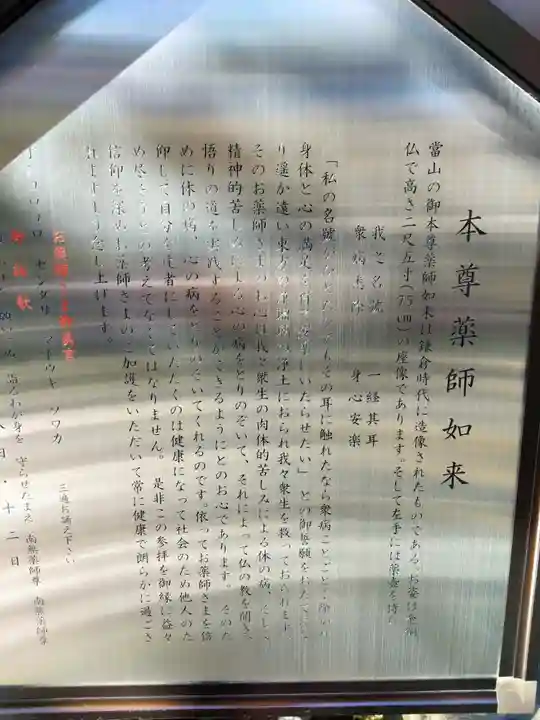 本尊薬師如来
當山の御本尊薬師如来は鎌倉時代に造像されたものである。お姿は
仏で高き二尺五寸(75㎝)の座像であります。そして左手には薬壷を持ち
我之名號 一経其耳
衆病悉除 身心安楽
「私の名號が もその耳に触れたなら衆病ことごとく除いて
身体と心の 安楽にいたらせたい」との御誓願をおたて
り遥か遠い東方の浄瑠璃の浄土におられ我々衆生を救っておられます
そのお薬師さまのお心は我々衆生の肉体的苦しみによる体の病、そして
精神的苦しみによる心の病をとりのぞいて、それによって仏の教を聞き、
悟りの道を実践することができるようにとのお心であります。そのた
めに体の病、心の病をとりのぞいてくれるのです。依ってお薬師さまを信
仰して自分を達者にしていただくのは健康になって社会のため他人のた
め尽そうとの考えでなくてはなりません。是非この参拝を御縁に益々
信仰を深めお薬師さまのご加護をいただいて常に健康で朗らかに過ごさ
れますよう念じ上げます。
コロコロ センダリ マトウギ ソワカ 三遍お誦え下さい
御詠歌
わが身を 守らせたまえ 南無薬師尊 南無薬師尊
八日・十二日